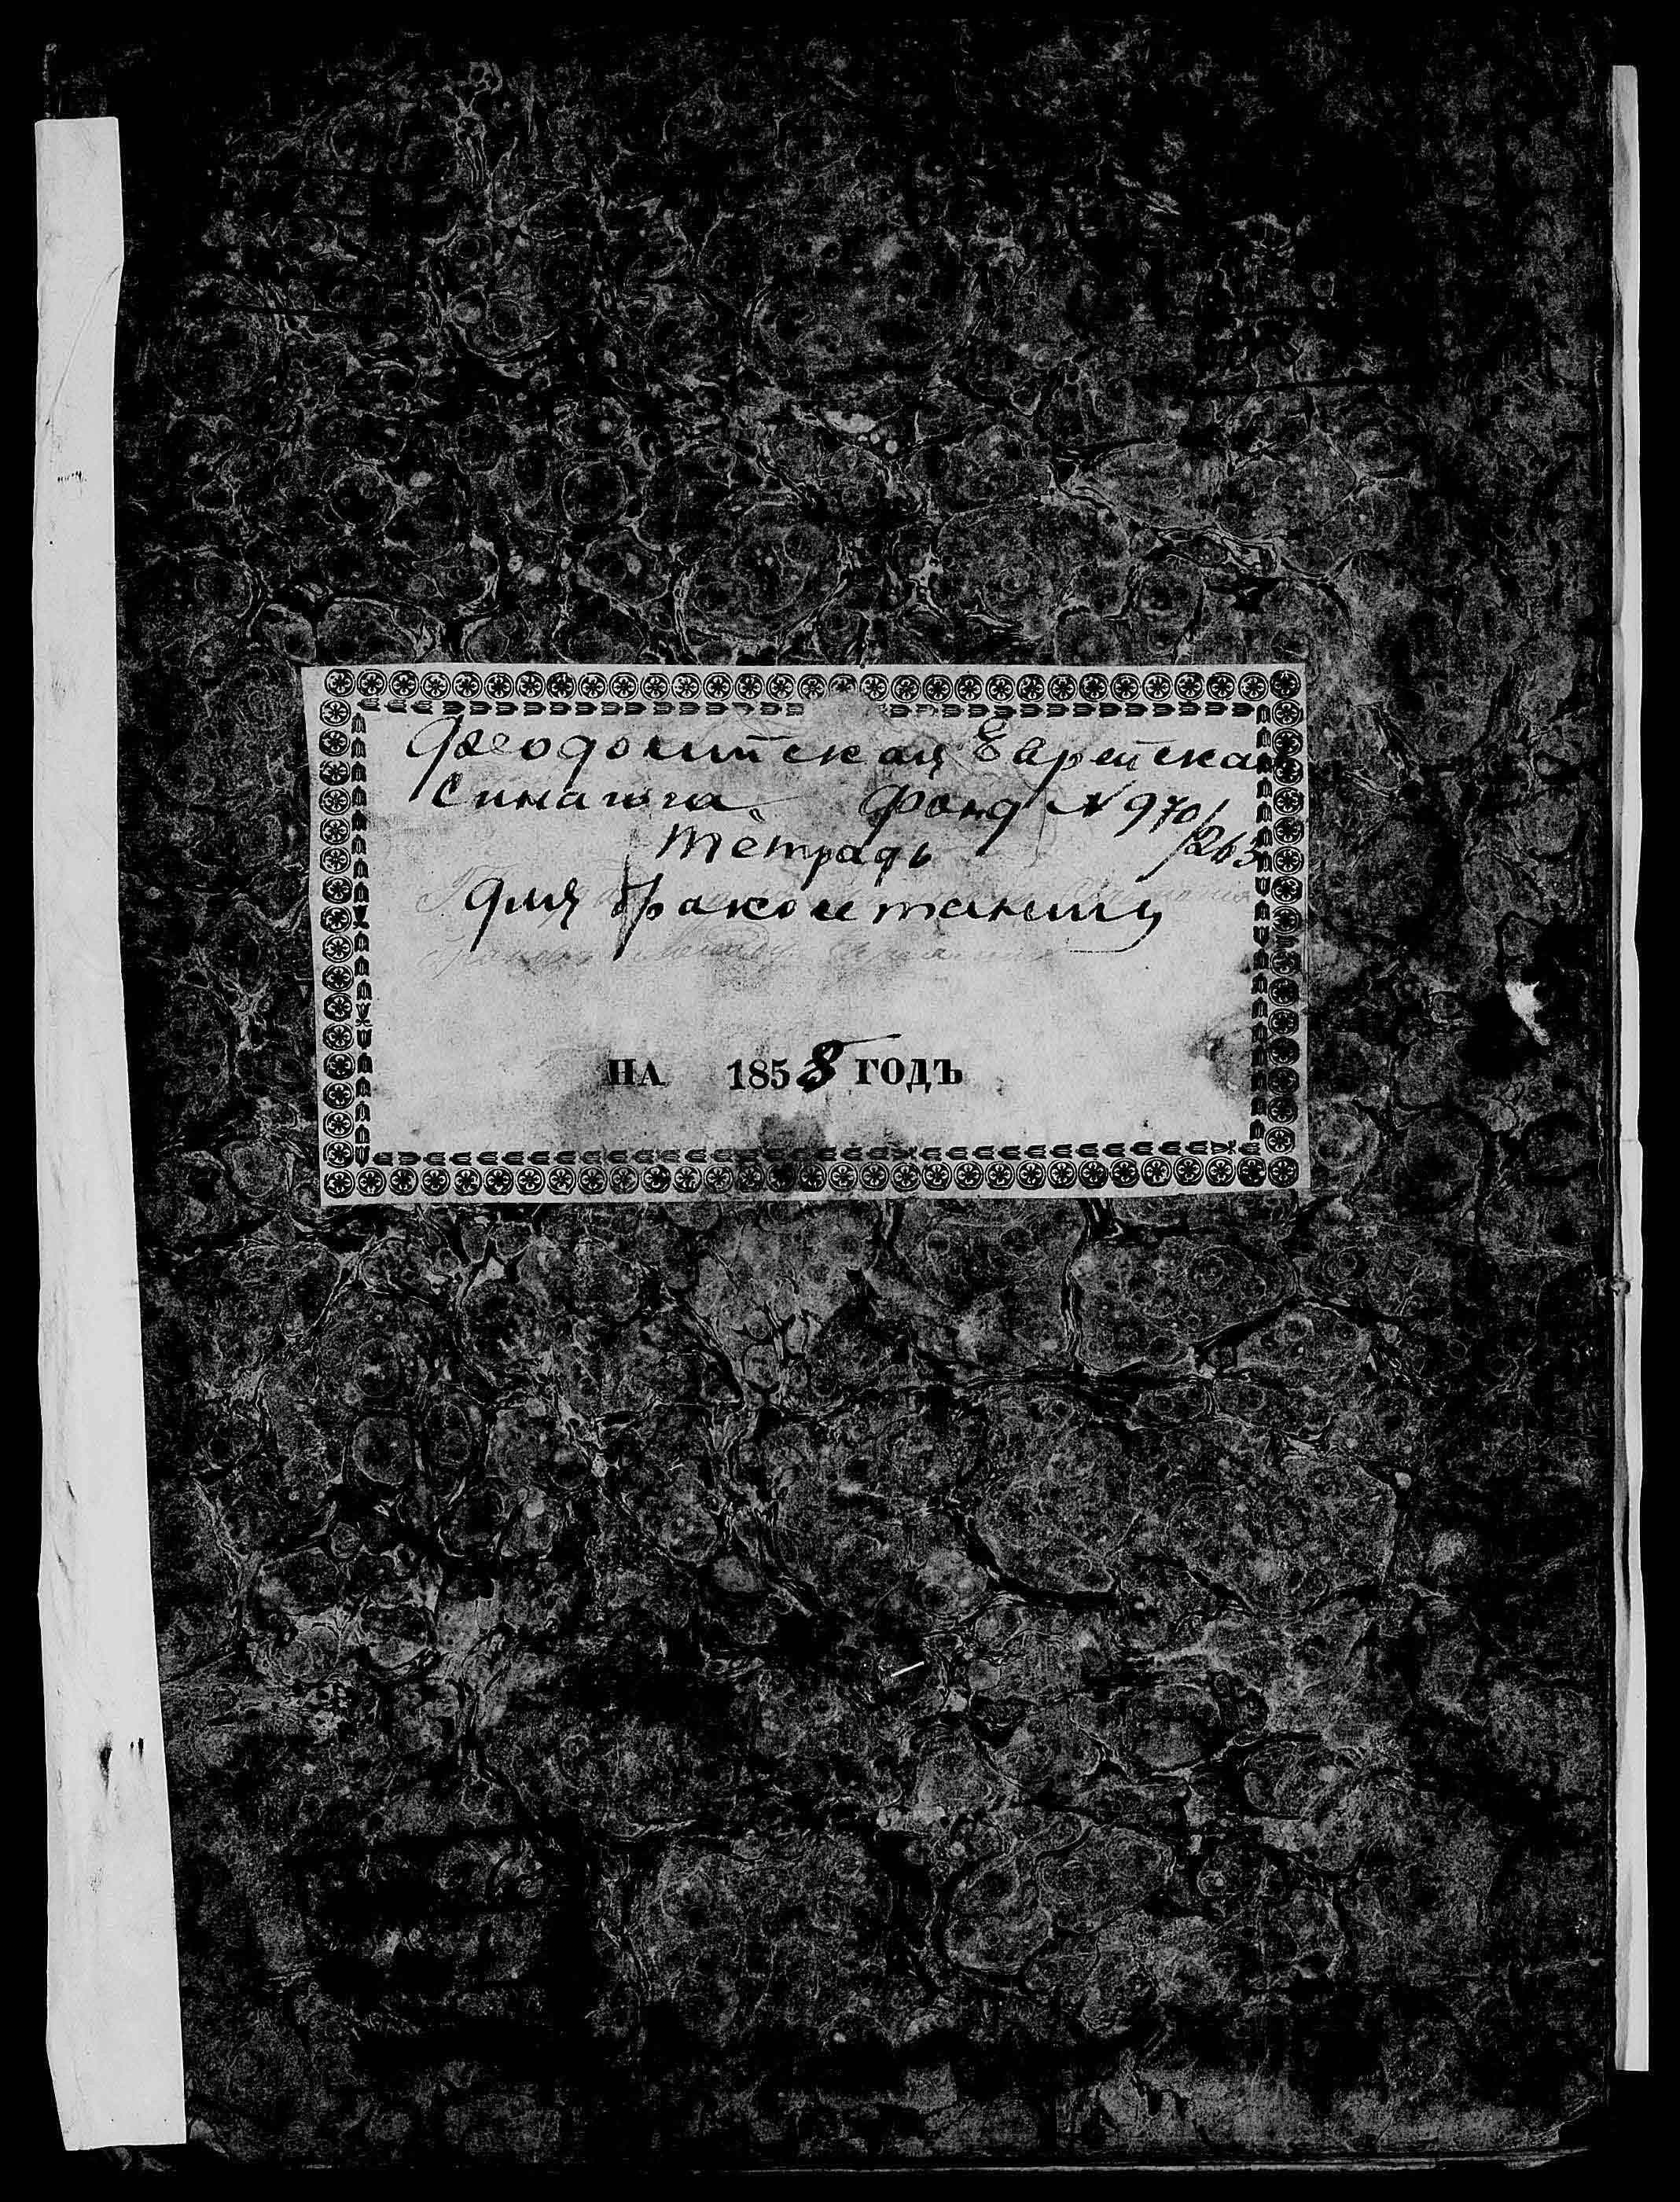 Феодосийская Еврейская
Синагога Фонд N 970/265
Тетрадь
для бракосочетания
НА 1858 ГОДЪ